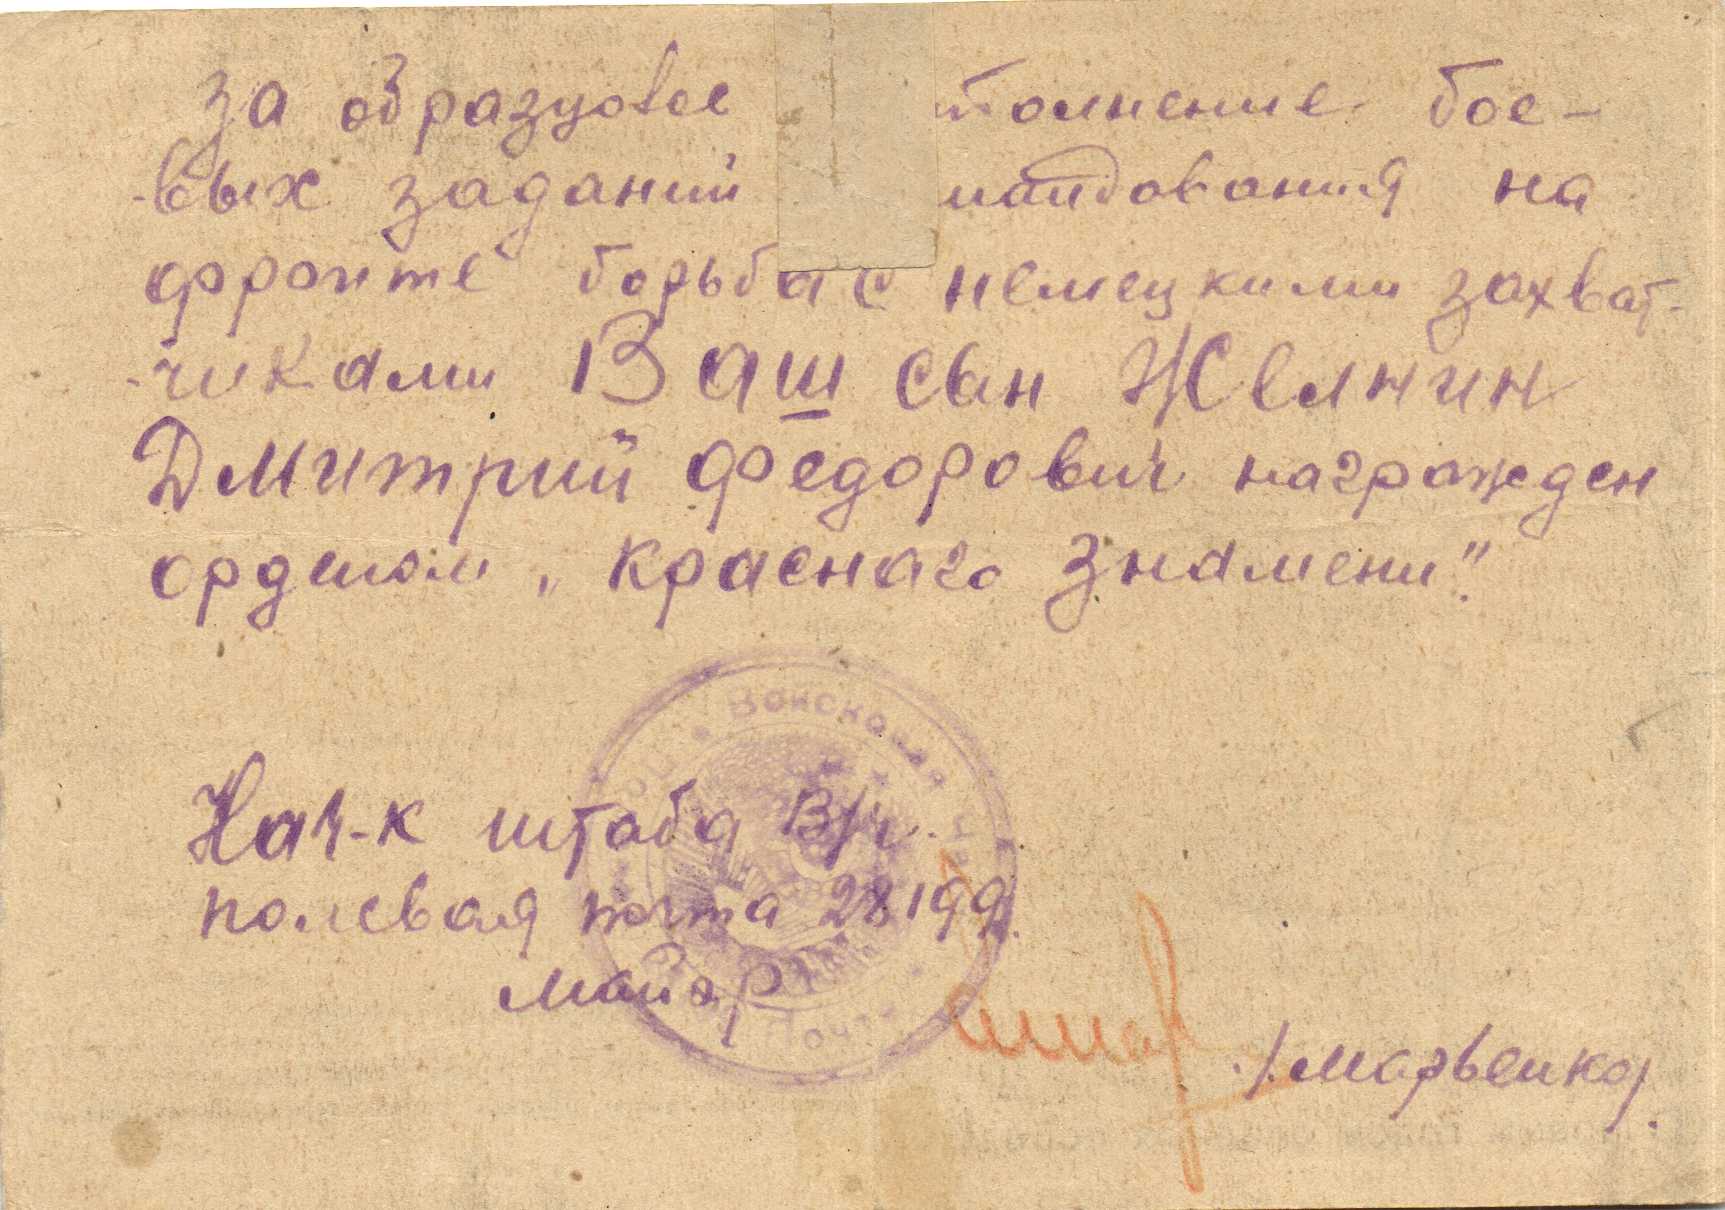 За образцовое полнение бое-
-вых заданий мандования на
фронте борьба с немецкими захват-
-чиками Ваш сын Желнин
Дмитрий Федорович награжден
орденом „Краснаго Знамени".
Войсковая
Нач-к штаба В/ч.
полевая почта 28199.
майор
/Марьенко/.